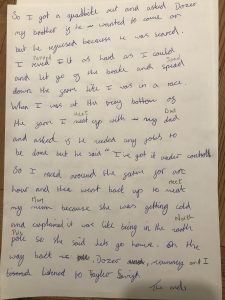 So I got a quadbike out and asked Dozer
my brother if he wanted to come on
but he refused because he was scared.
revved
I reved it as hard as I could
sped
and let go of the brake and spieed
down the farm like I was in a race
When I was at the very bottom of
the farm I meet up with my dad
and asked if he needed any jobs to
be done but he said "I've got it under controll"
So I raced around the farm for one
hour and then went back up to meat
meet
my mum because she was getting cold
and explained it was like being in the north
North
pole so she said lets go home. On the
way back me Dozer mummy and I
listened to Taylor Swift
The end.